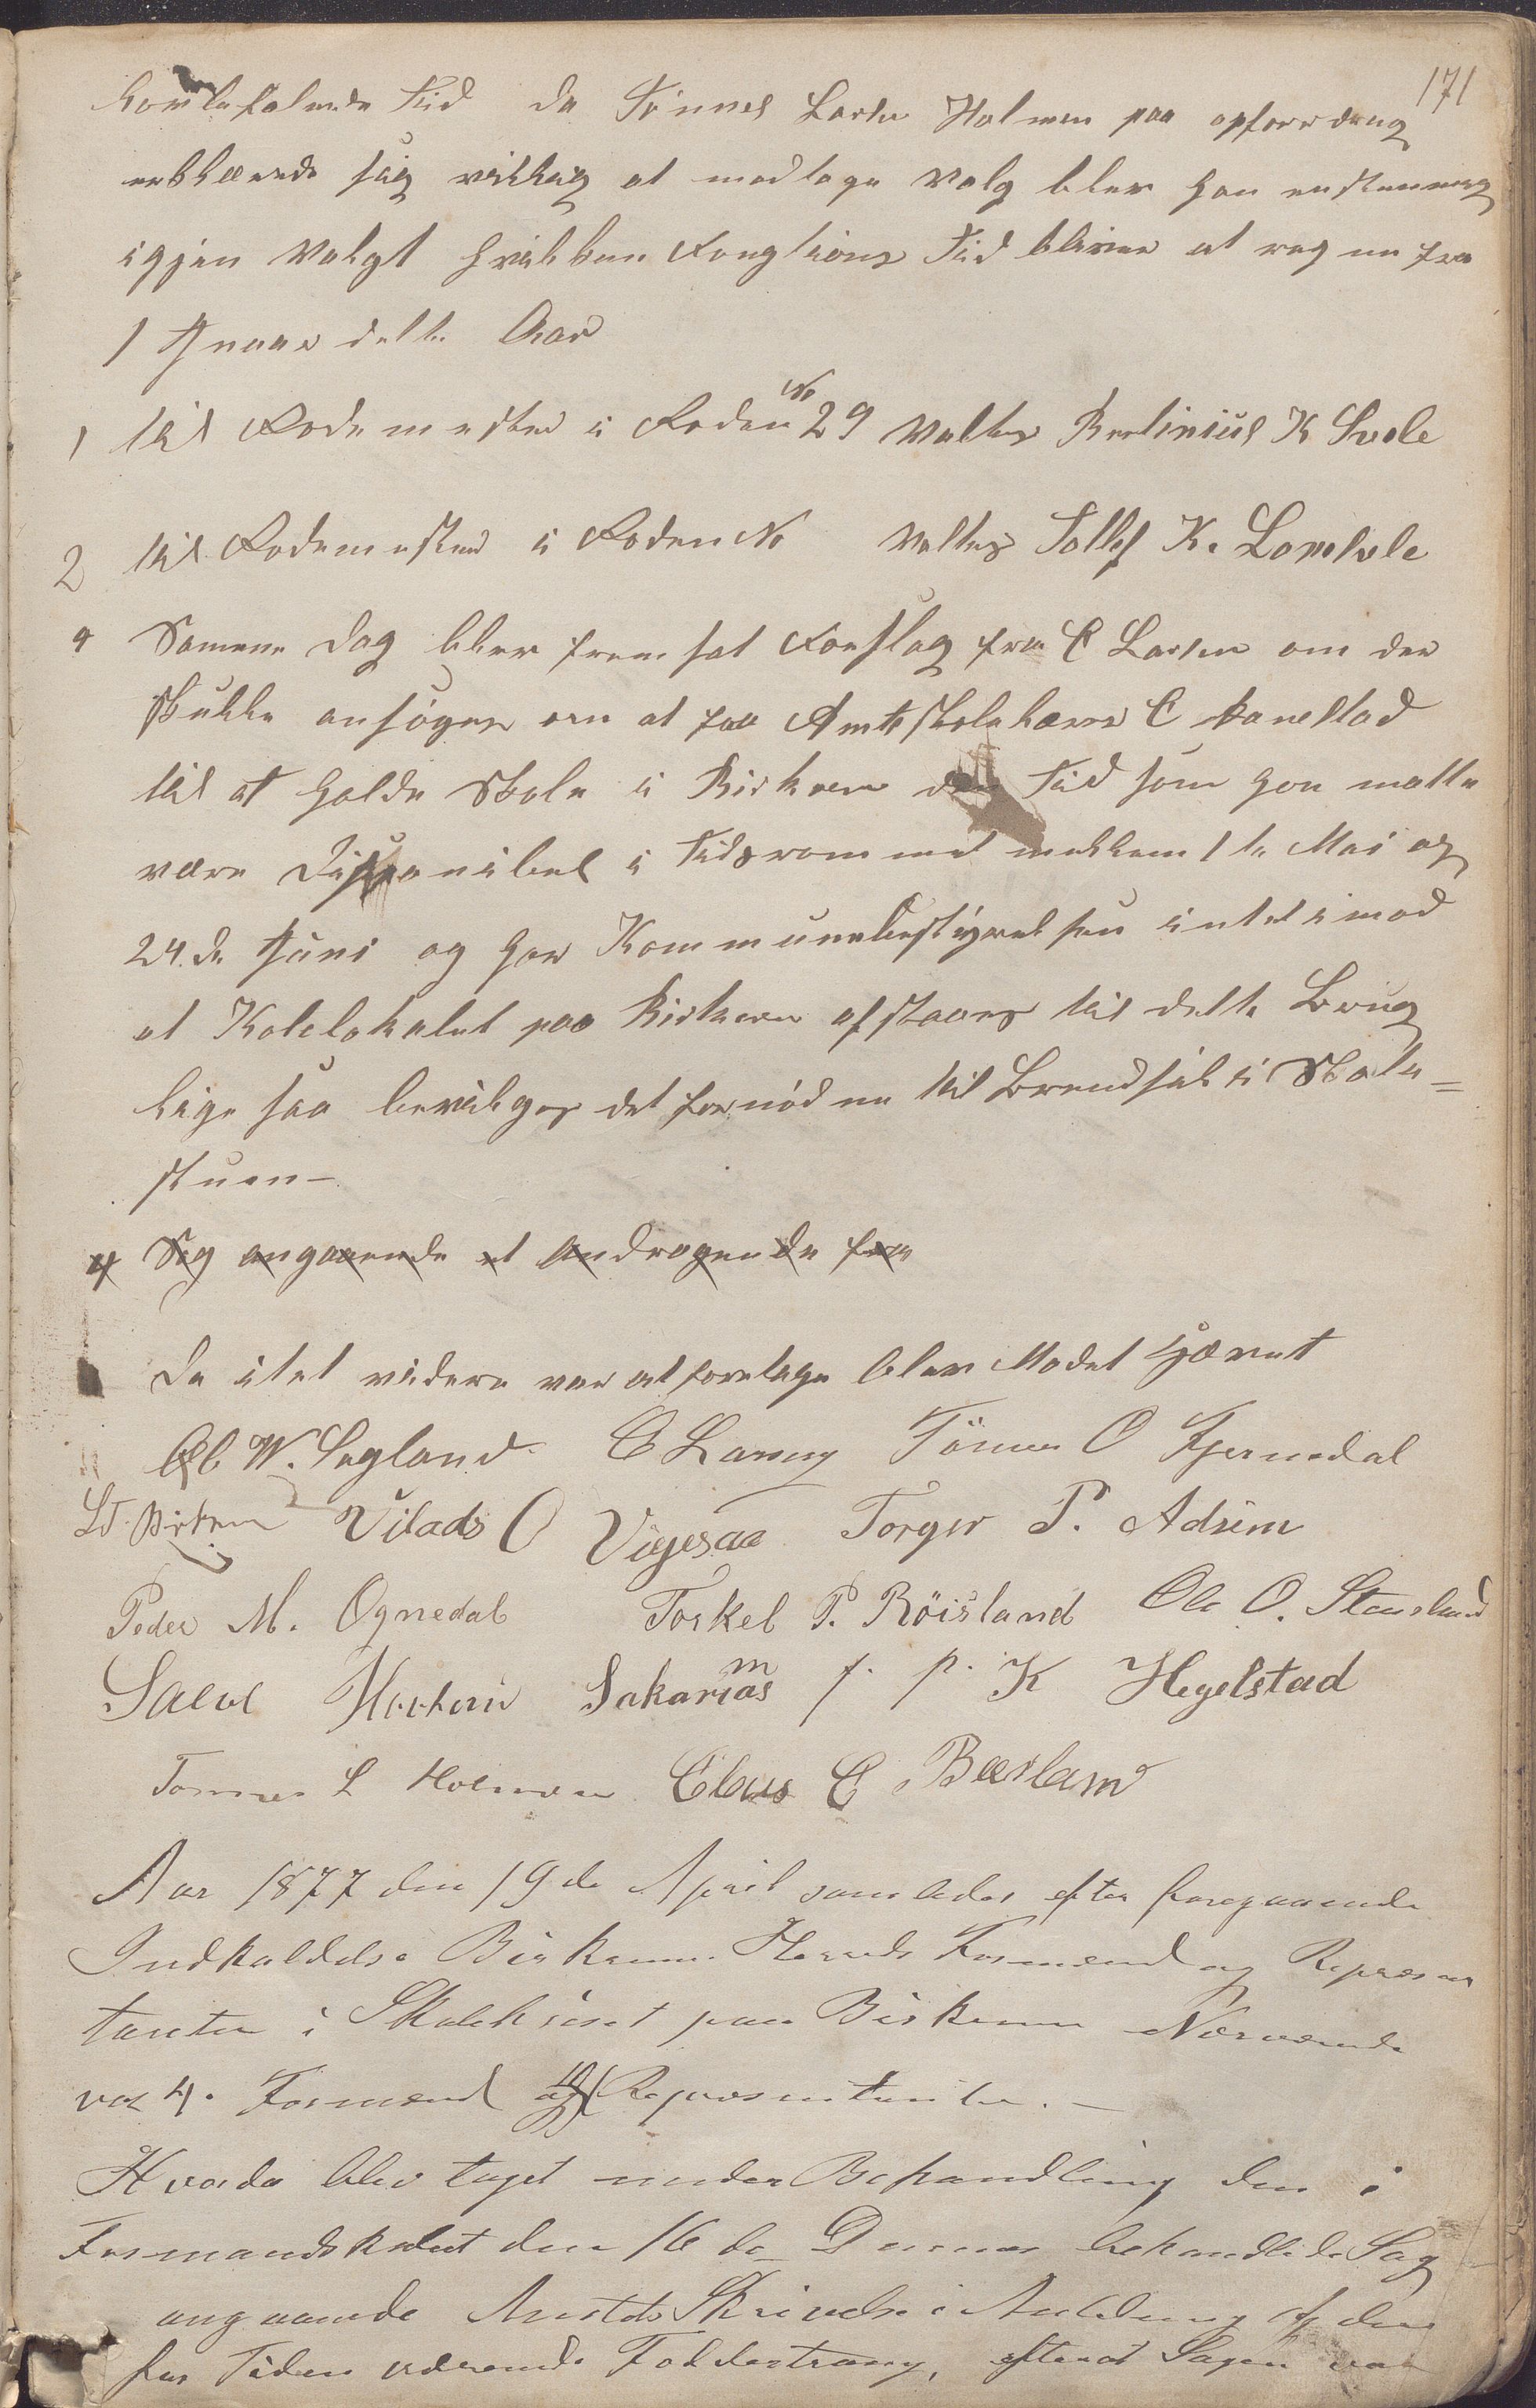 171
havlafalende Tid da Tönnes Larsen Holmen paa opfordring
erklærede sig villig at modtage Valg blev han enstemmig
igjen Valgt hvilken Fongtions Tid bliver at regne fra
1 Januar dette Aar
1 til Rodemester i Roden No 29 valtes Berlinius K Svele
2 til Rodemester i Roden No valtes Tollef K. Lomelsle
4 Samme Dag blev fremsat Forslag fra C Larsen om der
skulle ansøges om at faa Amtsskolelærer C Aanestad
til at holde Skole i Birkrem den Tid som han matte
være Disponibel i Tidsrommet mellem 1te Mai og
24de Juni og har Kommunebestyrelsen intet imod
at Kolelokalet paa Birkrem afstaaes til dette Brug
lige saa bevilges det fornødne til Brendsel i Skole=
stuen –
4 Sag angaaende et Andragende fra
Da itet videre var at foretage blev Mødet hævet
Ol W. Segland C Larsen Tönnes O Fjermedal
L T. Birkrem Vilads O Vigesaa Torger P. Adsem
Peder M. Ognedal Torkel P. Röisland Ole O. Stensland
Salve Sakarias m f. p. K Hegelstad
Tønnes L Holmen Claus C Bærland
Aar 1877 den 19de April samledes efter foregaaende
Indkaldelse Birkrems Herreds Formænd og Repræsen
tanter i Skolehuset paa Birkrem Nærværende
var 4. Formænd og Repræsentanter. –
Hvorda blev taget under Behandling den i
Formandskabet den 16de Dennes behandlede Sag
angaaende Amtets Skrivelse i Anledning af den
for Tiden værende Foddertrang, efterat Sagen var